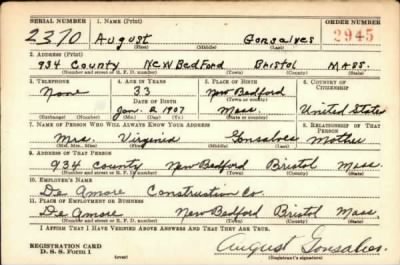 SERIAL NUMBER 1. NAME (Print) ORDER NUMBER
2370 August Gonsalves 2945
(First) (Middle) (Last)
2. ADDRESS (Print)
934 County New Bedford Bristol Mass.
(Number and street or R. F. D. number) (Town) (County) (State)
3. TELEPHONE 4. AGE IN YEARS 5. PLACE OF BIRTH 6. COUNTRY OF CITIZENSHIP
None 33 New Bedford
DATE OF BIRTH (Town or county)
Jan. 2 1907 Mass. United States
(Exchange) (Number) (Mo.) (Day) (Yr.) (State or country)
7. NAME OF PERSON WHO WILL ALWAYS KNOW YOUR ADDRESS 8. RELATIONSHIP OF THAT PERSON
Mrs. Virginia Gonsalves Mother
(Mr., Mrs., Miss) (First) (Middle) (Last)
9. ADDRESS OF THAT PERSON
934 County New Bedford Bristol Mass
(Number and street or R. F. D. number) (Town) (County) (State)
10. EMPLOYER'S NAME
De Amore Construction Co.
11. PLACE OF EMPLOYMENT OR BUSINESS
De Amore New Bedford Bristol Mass
(Number and street or R. F. D. number) (Town) (County) (State)
I AFFIRM THAT I HAVE VERIFIED ABOVE ANSWERS AND THAT THEY ARE TRUE.
REGISTRATION CARD August Gonsalves
D. S. S. Form 1 (over) (Registrant's signature)